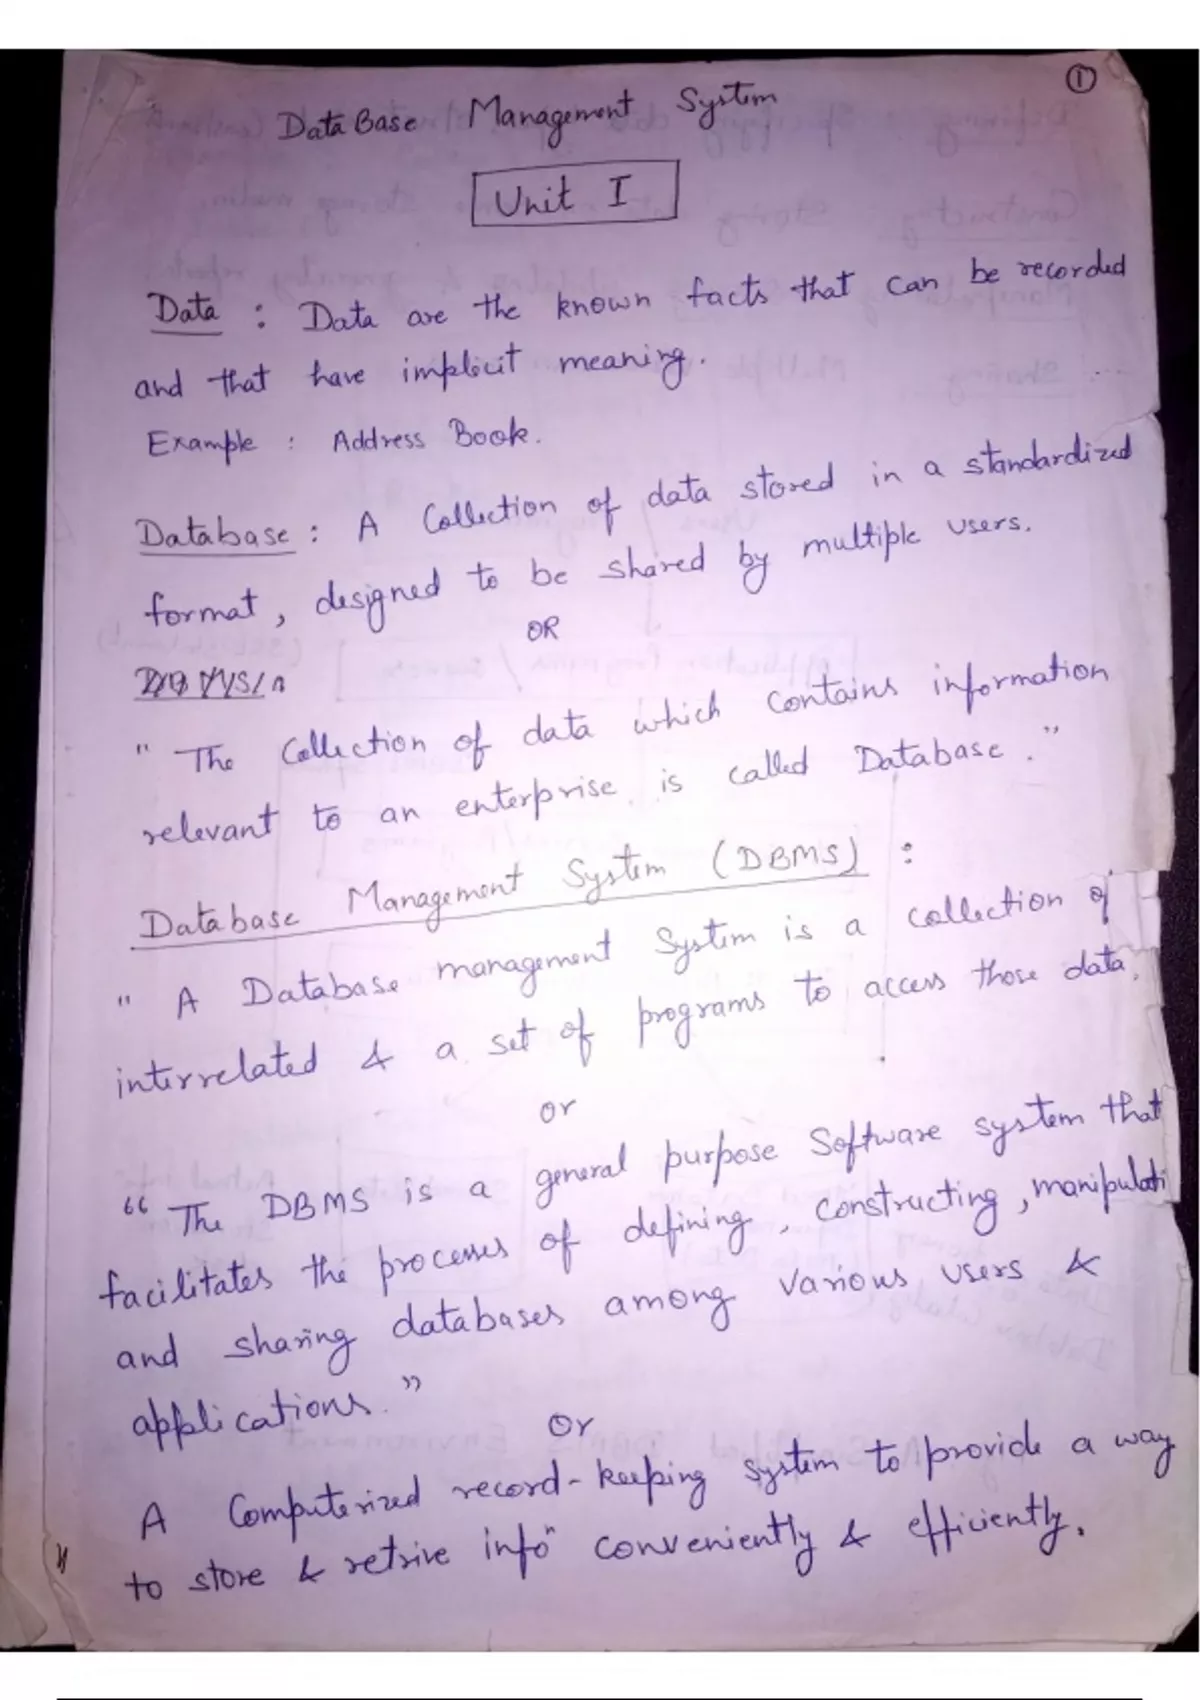 ①
DataBase Management System
Unit I
Data : Data are the known facts that can be recorded
and that have implicit meaning.
Example : Address Book.
Database : A Collection of data stored in a standardized
format, designed to be shared by multiple users.
OR
" The Collection of data which contains information
relevant to an enterprise is called Database . "
Database Management System (DBMS) :
" A Database management System is a collection of
interrelated & a set of programs to access those data.
or
" The DBMS is a general purpose Software system that
facilitates the processes of defining, constructing, manipulati
and sharing databases among various users &
applications. "
Or
A Computerized record-keeping system to provide a way
to store & retrive info" conveniently & efficiently.